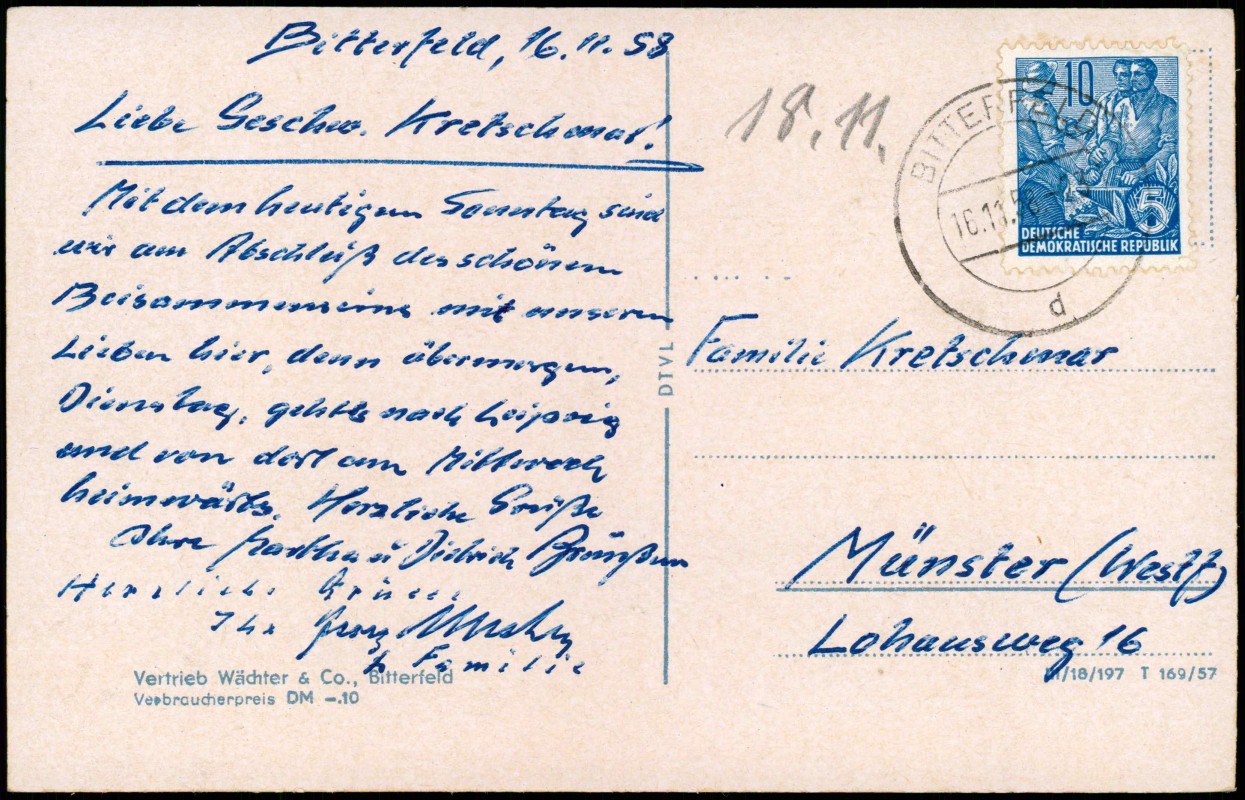 Bitterfeld, 16.11.58
Liebe Geschw. Kretschmar!
Mit dem heutigen Sonntag sind
wir am Abschluß des schönen
Beisammenseins mit unseren
Lieben hier, denn übermorgen,
Dienstag, gehts nach Leipzig
und von dort am Mittwoch
heimwärts. Herzliche Grüße
Ihre Martha u Dietrich
Herzliche Grüsse
Ihr
& Familie
Vertrieb Wächter & Co., Bitterfeld
Verbraucherpreis DM –.10
DTVL
18.11.
BITTERFELD
16.11.58
d
10
5
DEUTSCHE
DEMOKRATISCHE REPUBLIK
Familie Kretschmar
Münster (Westf)
Lohausweg 16
/18/197 T 169/57